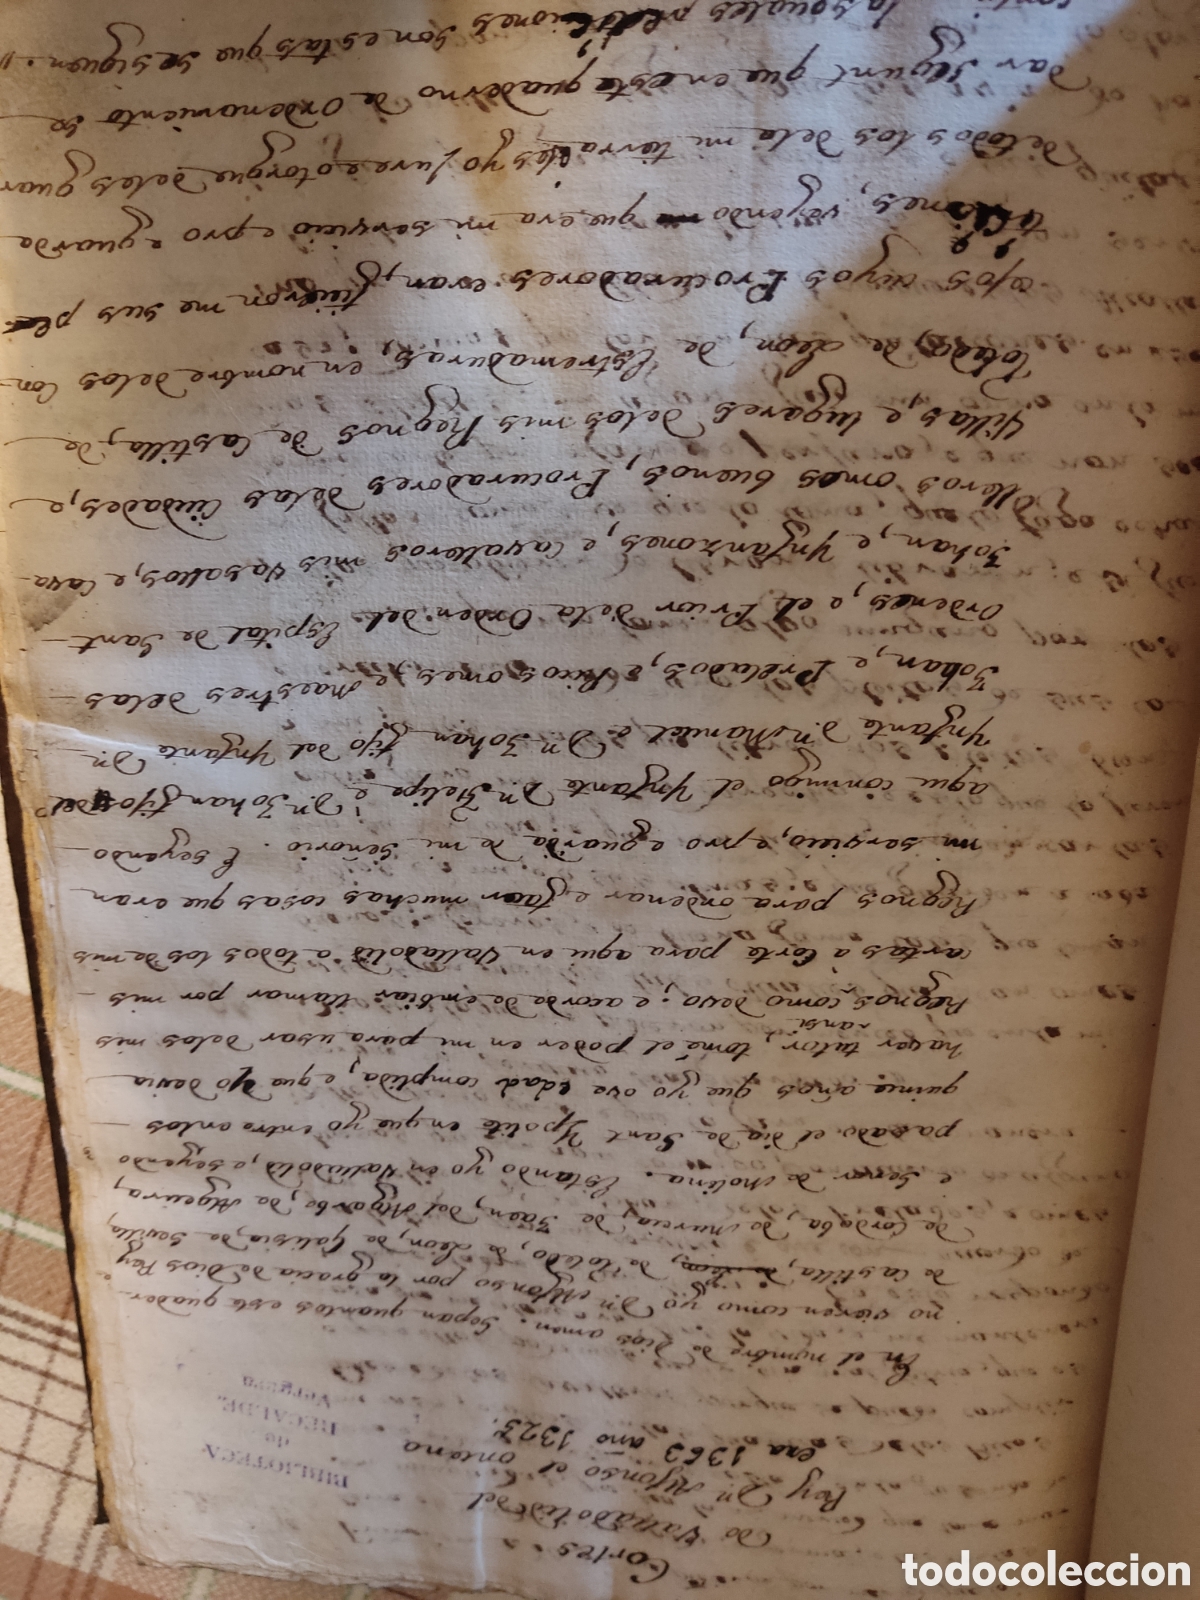 Cortes
de Valladolid del
Rey Dn Alfonso el onceno
era 1363 año 1325.
BIBLIOTECA
de
RECALDE
Vergara
En el nombre de Dios amen. Sepan quantos este quader-
no vieren como yo Dn Alfonso por la gracia de Dios Rey
de Castilla, de Toledo, de Leon, de Galisia, de Sevilla,
de Cordoba, de Murcia, de Jaen, del Algarbe, de Algecira,
e Senor de Molina. Estando yo en Valladolid, e seyendo
pasado el dia de Sant Ypolite en que yo entre en los
quince años que yo ove edad complida, e que yo devia
haver tutor, tomé el poder en mi para usar de los mis
ansi
Regnos, como devo; e acorde de embiar llamar por mis
cartas à Corte para aqui en Valladolid a todos los de mis
Regnos para ordenar e facer muchas cosas que eran
mi servicio, e pro e guarda de mi Señorio. E seyendo
aqui conmigo el Ynfante Dn Felipe e Dn Johan fijo del
Ynfante Dn Manuel e Dn Johan fijo del Ynfante Dn
Johan, e Prelados, e Ricos omes, e Maestres de las
Ordenes, e el Prior de la Orden del Espital de Sant
Johan, e Ynfanzones, e Cavalleros mis Vasallos, e Cava-
lleros omes buenos, Procuradores de las Ciudades, e
Villas, e lugares de los mis Regnos de Castilla, de
Toledo, de Leon, de Estremaduras, en nombre de los Con-
cejos cuyos Procuradores eran, ficieron me sus pe-
ticiones, veyendo que era mi servicio e pro e guarda
de todos los de la mi tierra, yo jure e otorgue de les guar
dar segunt que en este quaderno de Ordenamiento se
las quales peticiones son estas que se siguen.
todocoleccion